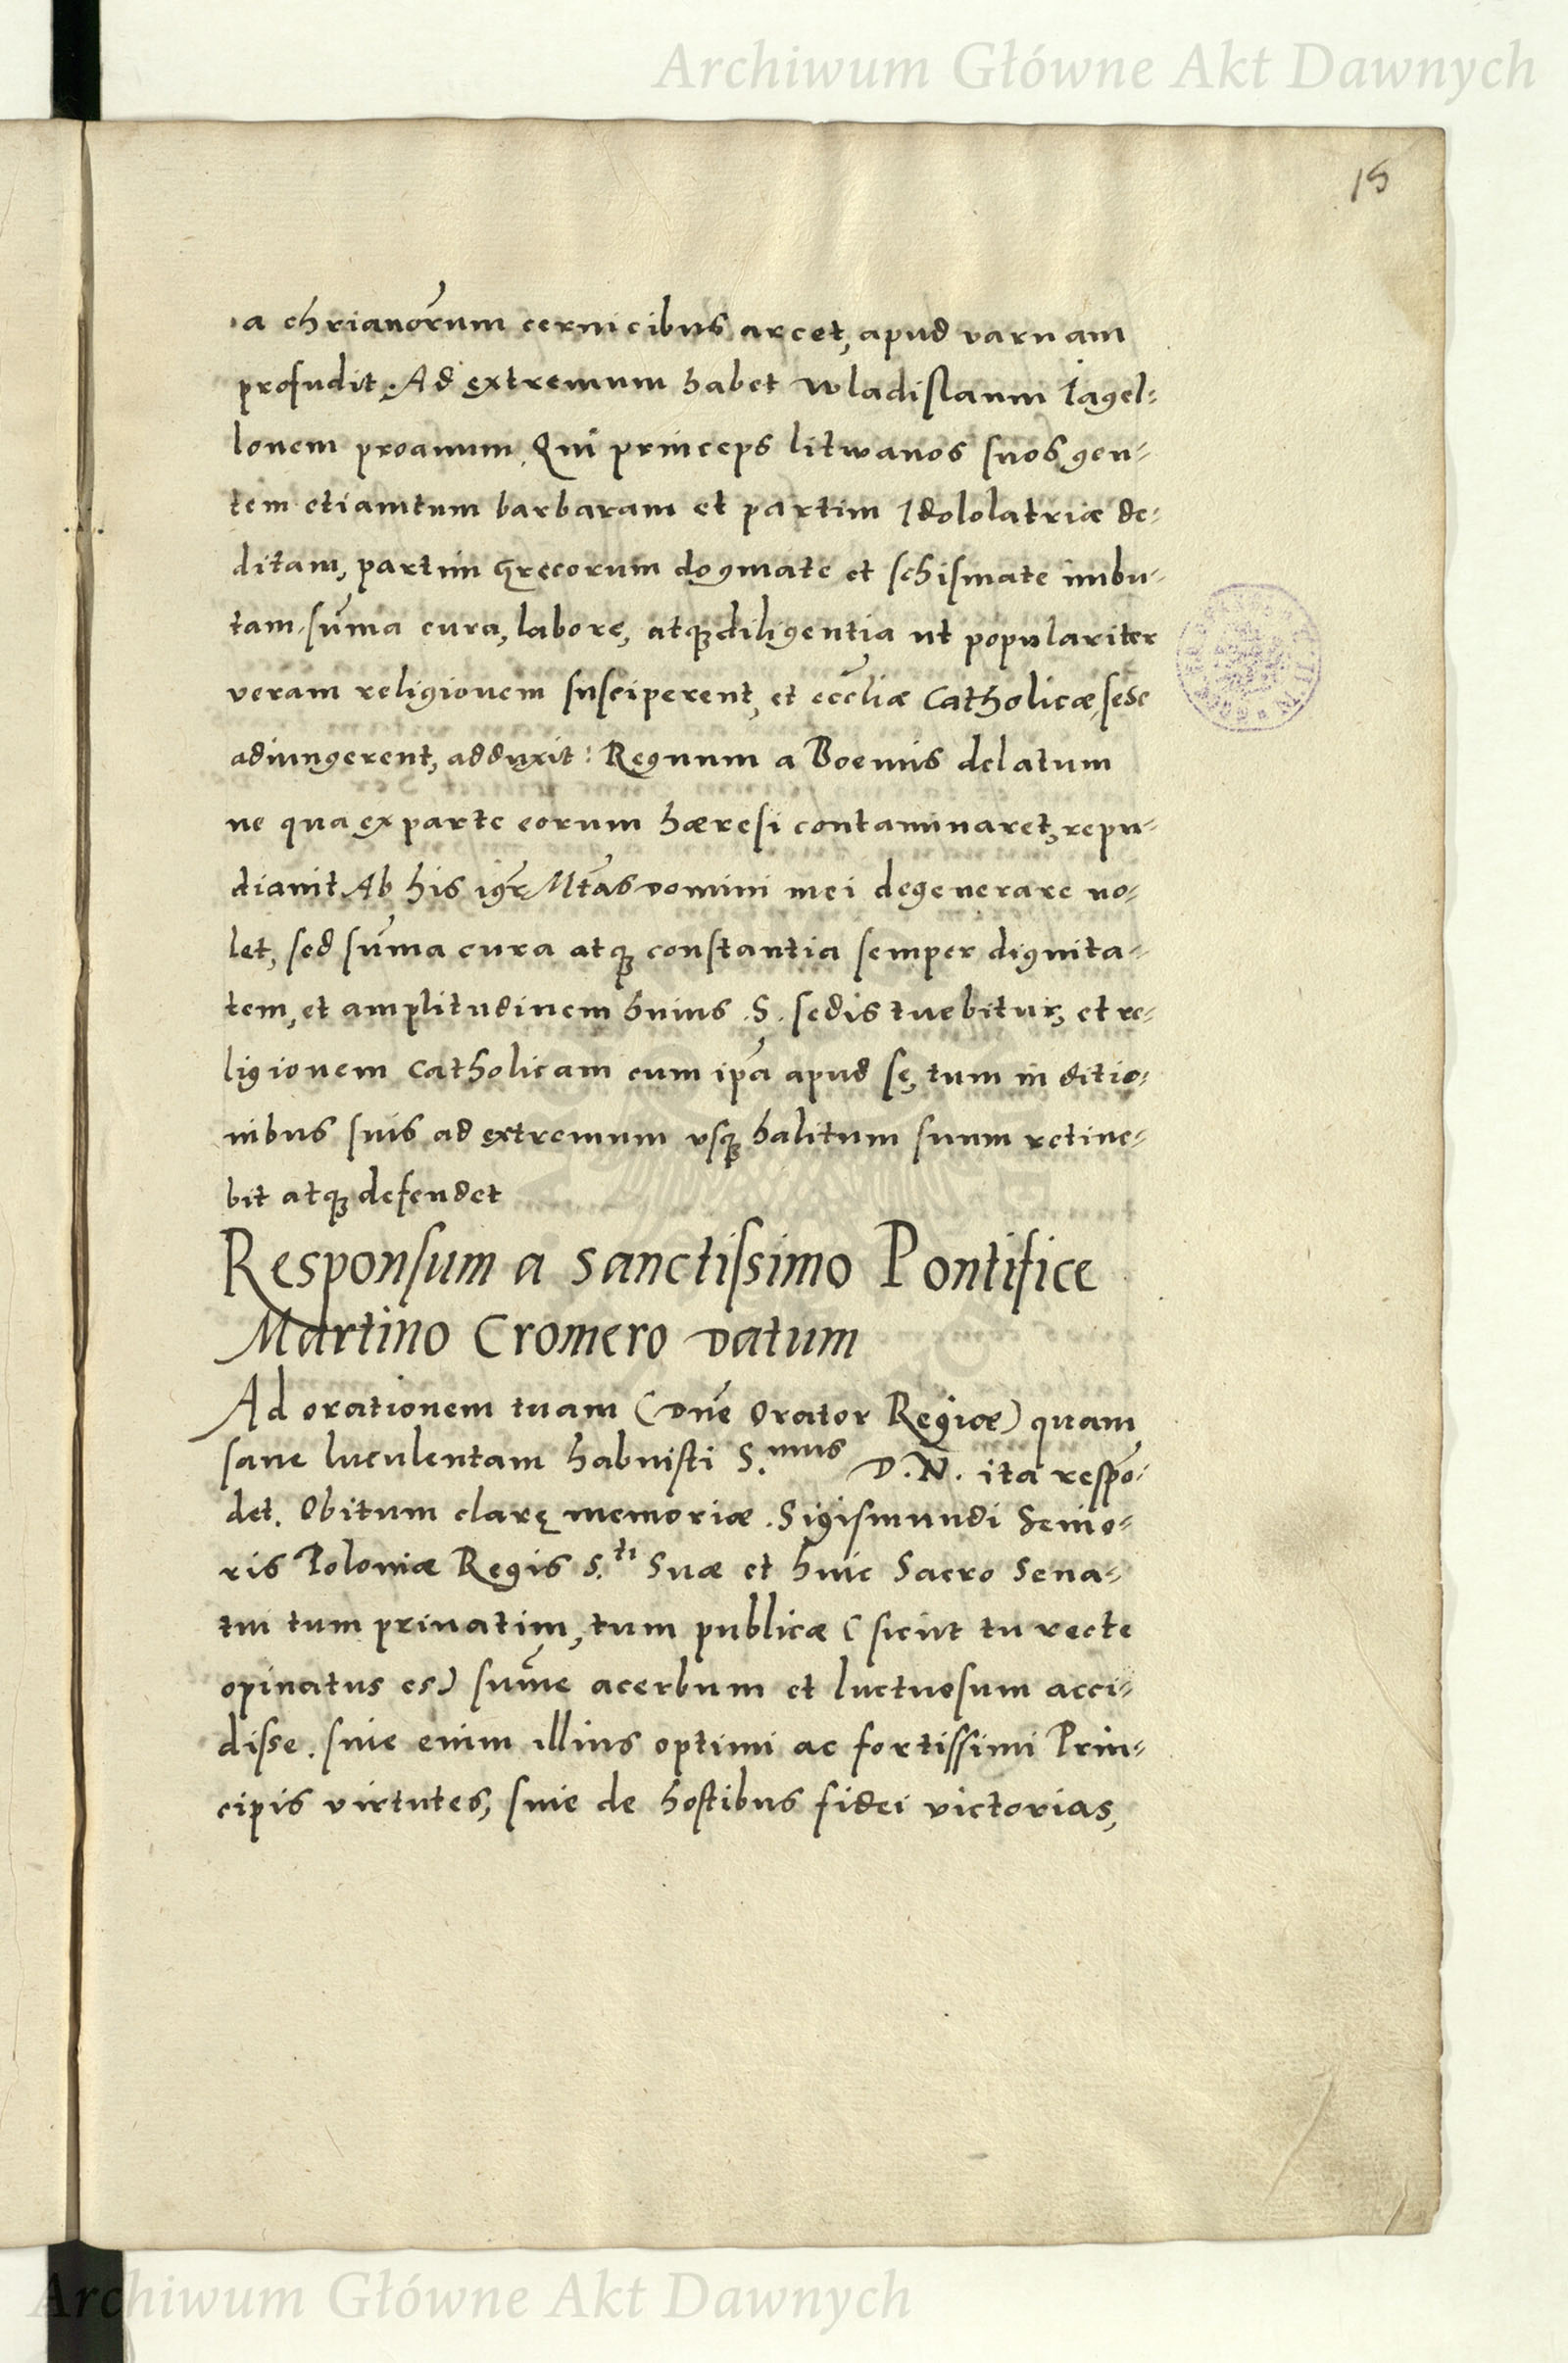 Archiwum Główne Akt Dawnych
15
a chrianorum ceruicibus arcet, apud varnam
profudit. Ad extremum habet Wladislaum Iagel-
lonem proauum. Qui princeps litwanos suos gen-
tem etiamtum barbaram et partim Idololatriæ de-
ditam, partim Gręcorum dogmate et schismate imbu-
tam, sum̄a cura, labore, atq; diligentia ut populariter
veram religionem susciperent, et eccl̄iæ Catholicæ sese
adiungerent, adduxit: Regnum a Boemis delatum
ne qua ex parte eorum hæresi contaminaret, repu-
diauit Ab his igr̄ Mt̄as Domini mei degenerare no-
let, sed sum̄a cura atq; constantia semper dignita-
tem, et amplitudinem huius .S. sedis tuebitur, et re-
ligionem Catholicam cum ip̄a apud se, tum in ditio-
nibus suis ad extremum vsq; halitum suum retine-
bit atq; defendet
Responsum a Sanctissimo Pontifice
Martino Cromero Datum
Ad orationem tuam (Dn̄e Orator Regiæ) quam
sane luculentam habuisti S.mus D.N. ita respō-
det. Obitum clarę memoriæ .Sigismundi Senio-
ris Poloniæ Regis S.ti Suæ et huic Sacro Sena-
tui tum priuatim, tum publicæ (sicut tu recte
opinatus es) sum̄e acerbum et luctuosum acci-
disse. siue enim illius optimi ac fortissimi Prin-
cipis virtutes, siue de hostibus fidei victorias,
Archiwum Główne Akt Dawnych